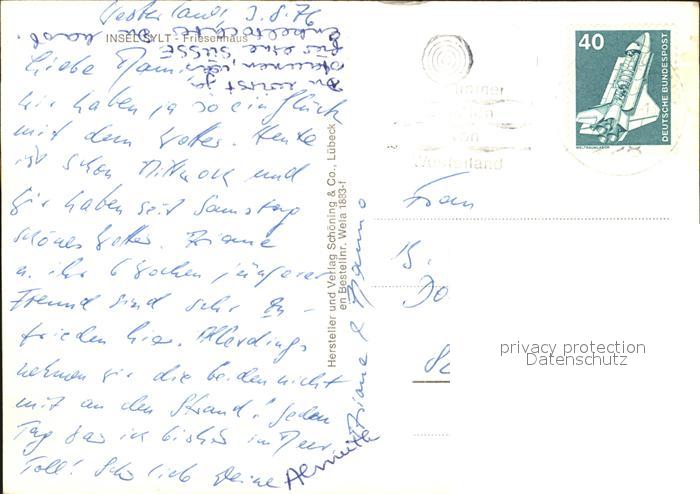 Westerland, 3.8.76
INSEL SYLT - Friesenhaus
Liebe Mami,
wir haben ja so ein Glück
mit dem Wetter. Heute
ist schon Mittwoch und
wir haben seit Samstag
schönes Wetter.
u. ihr 6 Wochen jüngerer
Freund sind sehr zu-
frieden hier. Allerdings
nehmen wir die beiden nicht
mit an den Strand! Jeden
Tag war ich bisher im Meer.
Toll! Deine
Du wirst ja
staunen,
für eine süsse
Enkeltochter
hast.
Hersteller und Verlag Schöning & Co., Lübeck
en Bestellnr. Wela 1883-f
40
DEUTSCHE BUNDESPOST
WELTRAUMLABOR
von
Westerland
Frau
Do
privacy protection
Datenschutz